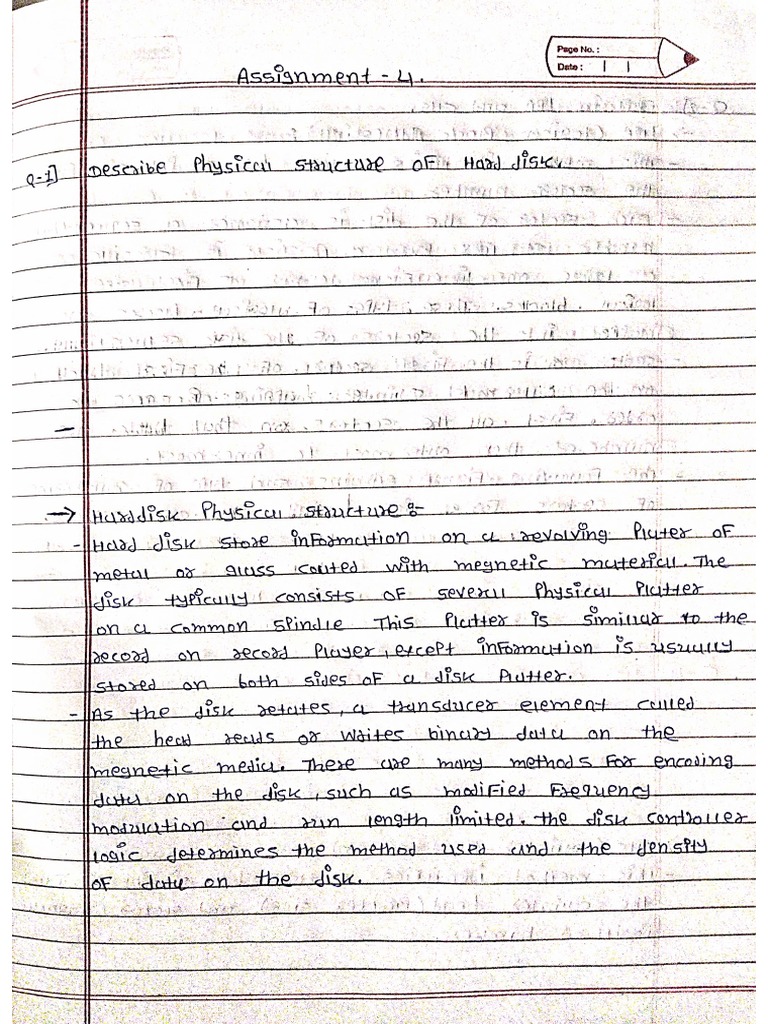 Page No. :
Date :
Assignment - 4.
Q-1] Describe Physical structure of Hard disk.
→ Harddisk Physical structure :-
- Hard disk store information on a revolving Plater of
metal or glass coated with megnetic material. The
disk typically consists of several Physical Platter
on a common spindle This Platter is similar to the
record on record Player, except information is usually
stored on both sides of a disk Platter.
- As the disk retates, a transducer element called
the head reads or writes binary data on the
megnetic media. There are many methods for encoding
data on the disk, such as modified Frequency
modulation and run length limited. the disk controller
logic determines the method used and the density
of data on the disk.